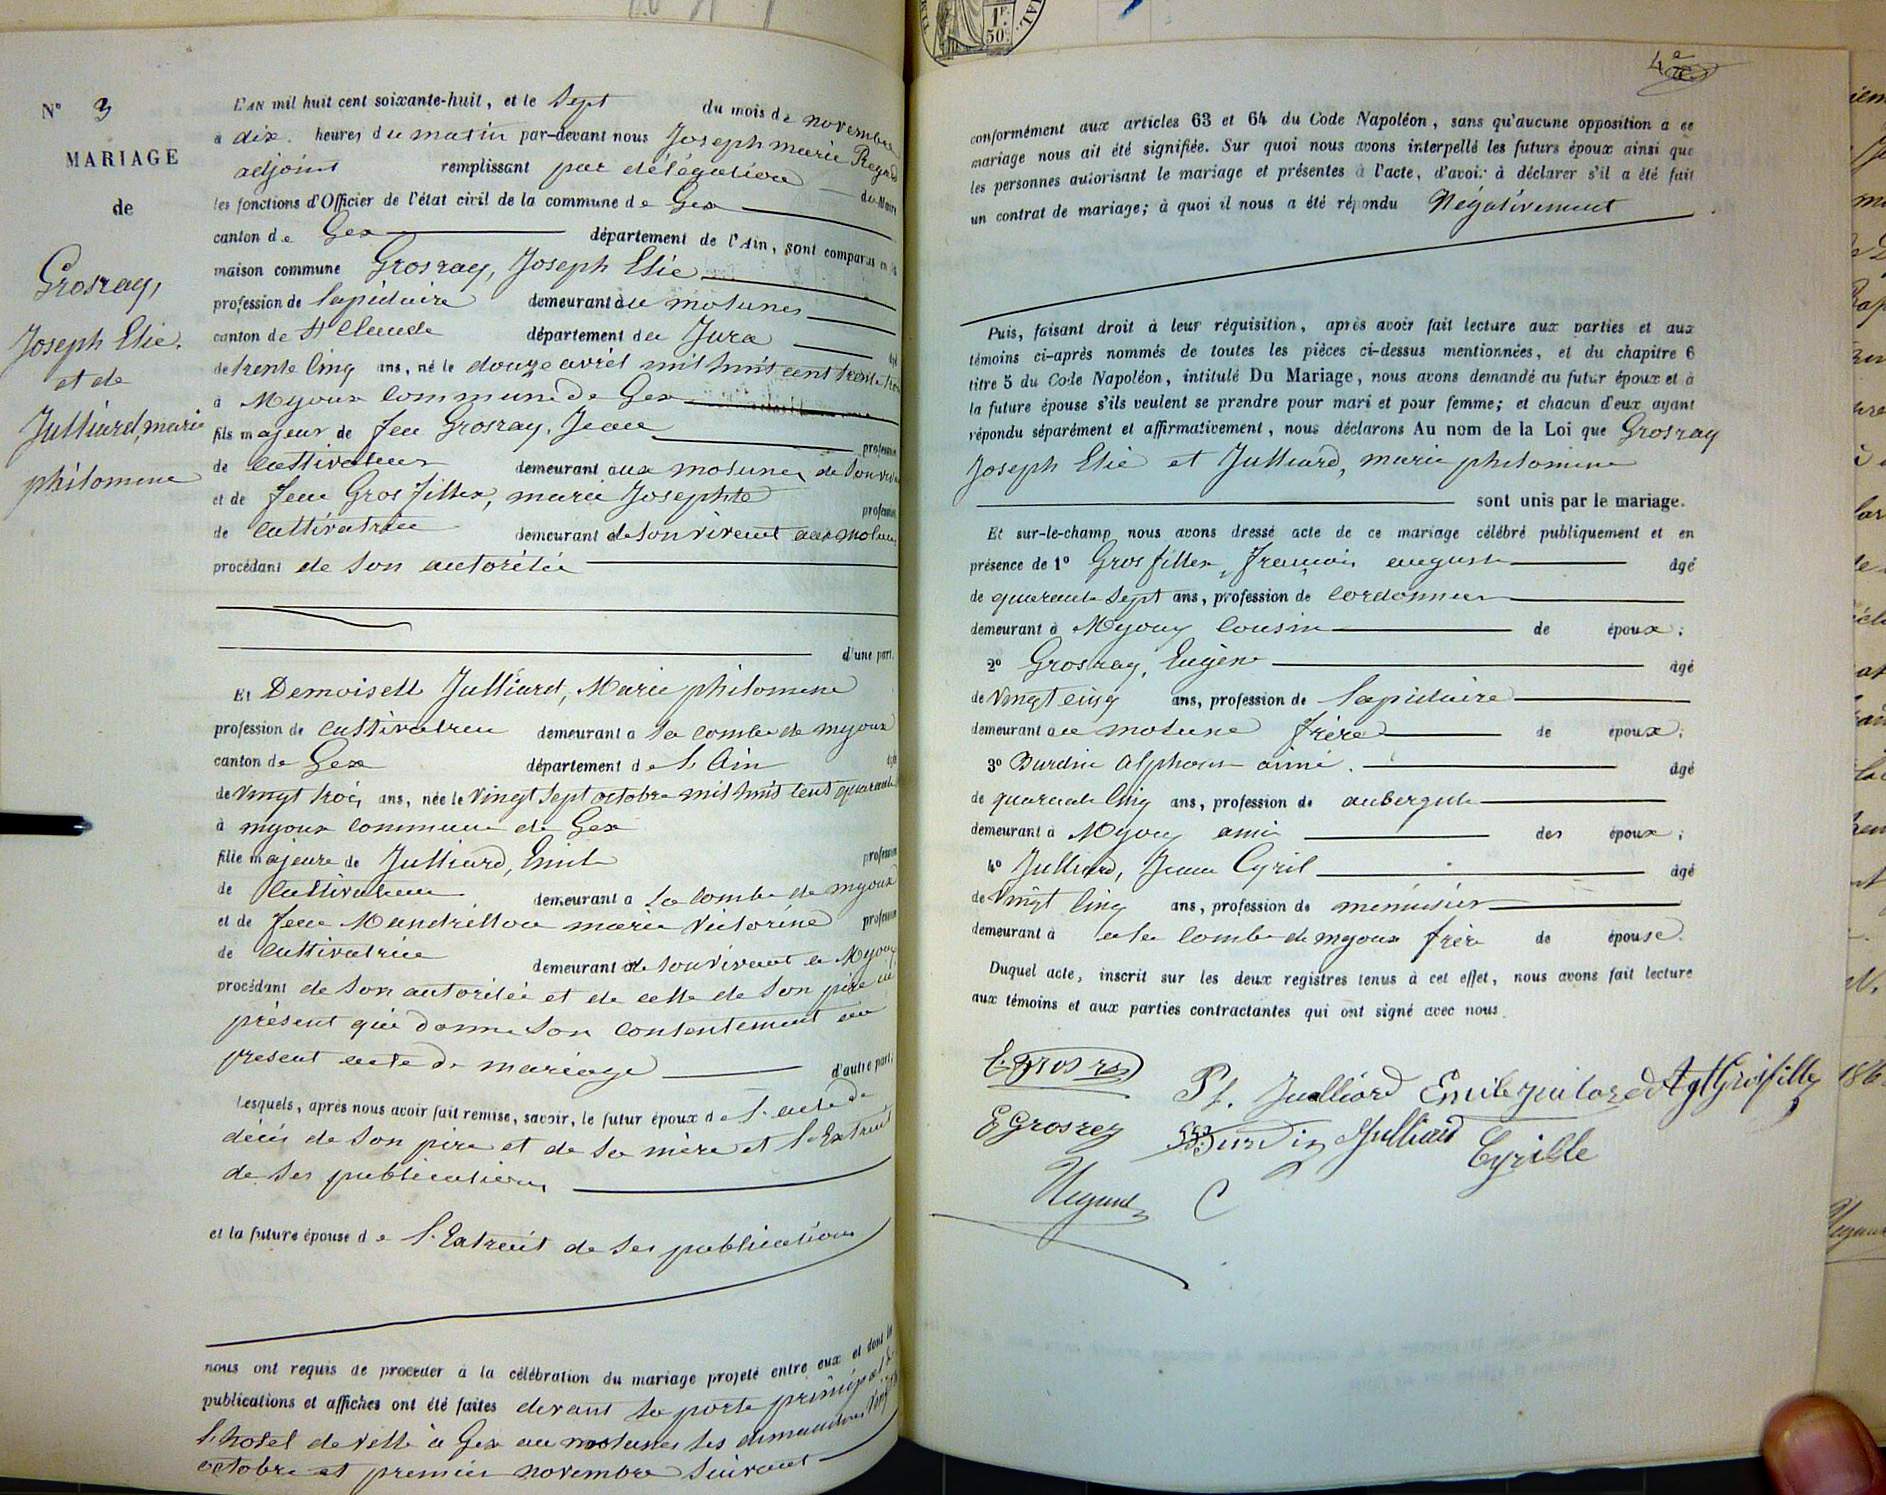 N° 3
MARIAGE
de
Grosrey,
Joseph Elie.
et de
Julliard, marie
philomene
L'AN mil huit cent soixante-huit, et le Sept du mois de novembre
à dix heures du matin par-devant nous Joseph marie Regard
adjoint remplissant par délégation du Maire
les fonctions d'Officier de l'état civil de la commune de Gex
canton de Gex département de l'Ain, sont comparus en la
maison commune Grosrey, Joseph Elie
profession de lapidaire demeurant au molunes
canton de St Claude département du Jura âgé
de trente cinq ans, né le douze avril mil huit cent trente trois
à Myoux commune de Gex
fils majeur de feu Grosrey, Jean profession
de cultivateur demeurant aux molunes de son vivant
et de feue Gros fillex, marie Josephte profession
de cultivatrice demeurant de son vivant aux molunes
procédant de son autoritée
d'une part.
Et Demoiselle Julliard, Marie philomene
profession de cultivatrice demeurant à la combe de myoux
canton de Gex département de l'Ain âgée
de vingt trois ans, née le vingt sept octobre mil huit cent quarante
à myoux commune de Gex
fille majeure de Julliard, Emile profession
de cultivateur demeurant à la combe de myoux
et de feue Mandrillon marie Victorine profession
de cultivatrice demeurant de son vivant à Myoux
procédant de son autoritée et de celle de son père ici
présent qui donne son consentement au
présent acte de mariage d'autre part;
Lesquels, après nous avoir fait remise, savoir, le futur époux de l'acte de
décès de son père et de sa mère et l'Extrait
de ses publications
et la future épouse de l'Extrait de ses publications
nous ont requis de procéder à la célébration du mariage projeté entre eux et dont les
publications et affiches ont été faites devant la porte principale de
l'hotel de ville à Gex au molunes les dimanches vingt
octobre et premier novembre suivant
4e
conformément aux articles 63 et 64 du Code Napoléon, sans qu'aucune opposition à ce
mariage nous ait été signifiée. Sur quoi nous avons interpellé les futurs époux ainsi que
les personnes autorisant le mariage et présentes à l'acte, d'avoir à déclarer s'il a été fait
un contrat de mariage; à quoi il nous a été répondu Négativement
Puis, faisant droit à leur réquisition, après avoir fait lecture aux parties et aux
témoins ci-après nommés de toutes les pièces ci-dessus mentionnées, et du chapitre 6
titre 5 du Code Napoléon, intitulé Du Mariage, nous avons demandé au futur époux et à
la future épouse s'ils veulent se prendre pour mari et pour femme; et chacun d'eux ayant
répondu séparément et affirmativement, nous déclarons Au nom de la Loi que Grosrey
Joseph Elie et Julliard, marie philomene
sont unis par le mariage.
Et sur-le-champ nous avons dressé acte de ce mariage célébré publiquement et en
présence de 1° Gros fillex, françois auguste âgé
de quarante sept ans, profession de cordonnier
demeurant à Myoux cousin de époux;
2° Grosrey, Eugène âgé
de vingt cinq ans, profession de lapidaire
demeurant au molune frère de époux;
3° Burdin alphonse aimé. âgé
de quarante cinq ans, profession de aubergiste
demeurant à Myoux ami des époux;
4° Julliard, Jean Cyril âgé
de vingt cinq ans, profession de menuisier
demeurant à a la combe de myoux frère de épouse.
Duquel acte, inscrit sur les deux registres tenus à cet effet, nous avons fait lecture
aux témoins et aux parties contractantes qui ont signé avec nous.
Julliard Emile Agte Grosfillex
E Grosrey Burdin Julliard Cyrille
Regard